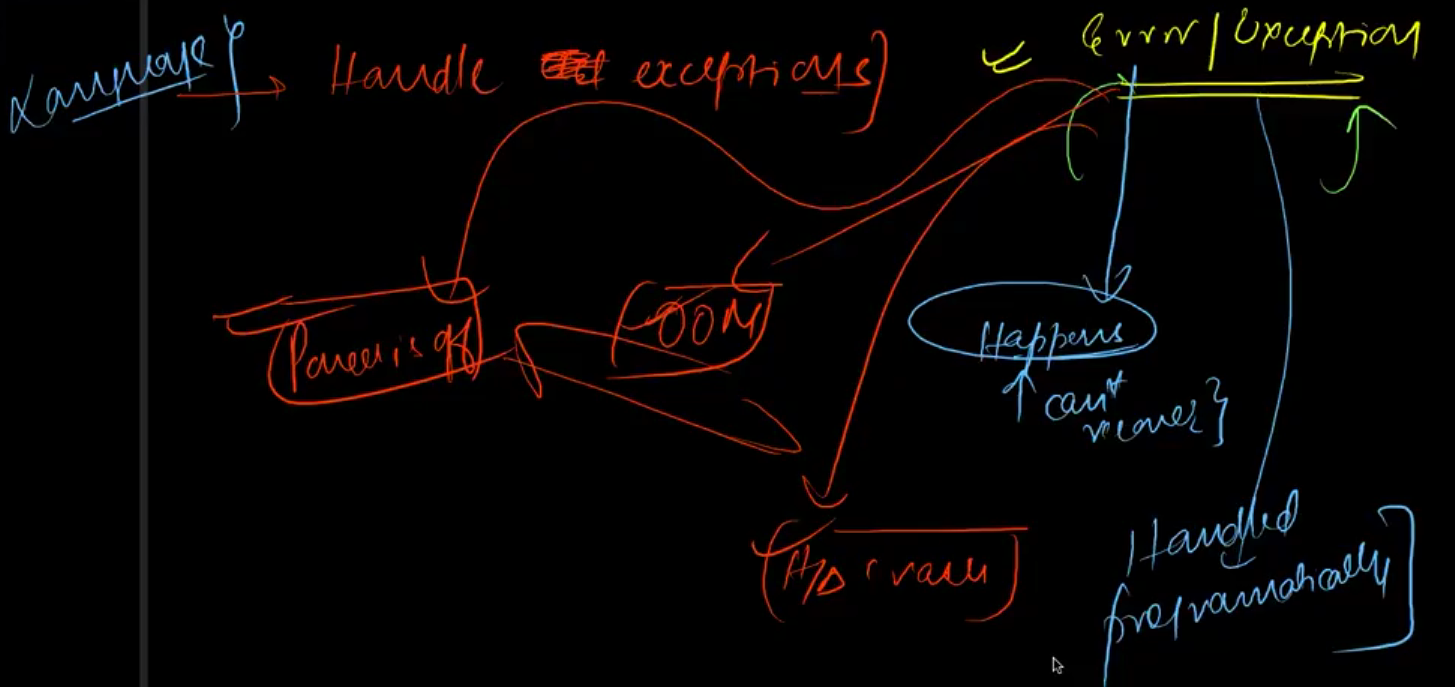 Language} → Handle exceptions]
Error/Exception
Power is off
OOM
Happens
↑ can't
recover}
H/D crash
Handled
programatically]